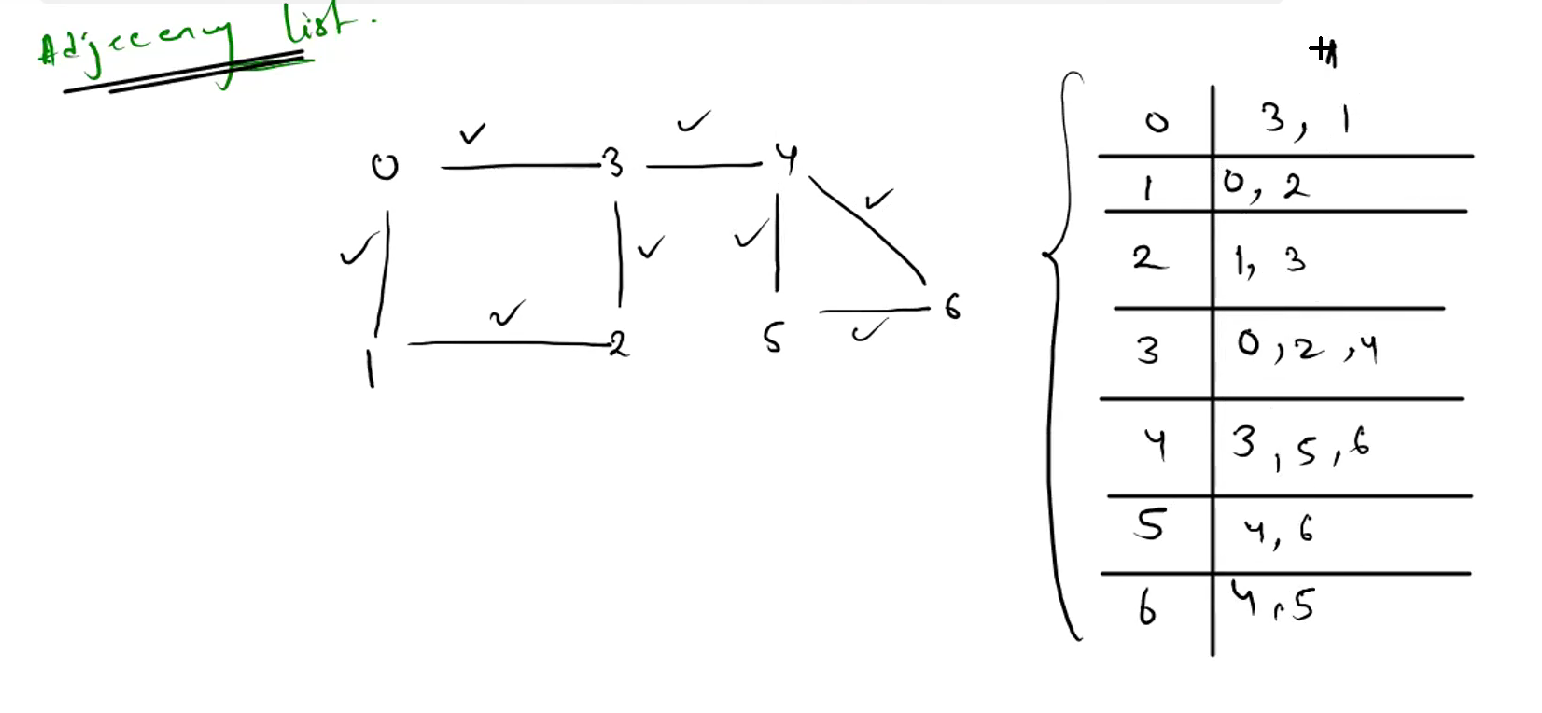 Adjeceny list.
0 3 4
1 2 5 6
0 3, 1
1 0, 2
2 1, 3
3 0, 2, 4
4 3, 5, 6
5 4, 6
6 4, 5